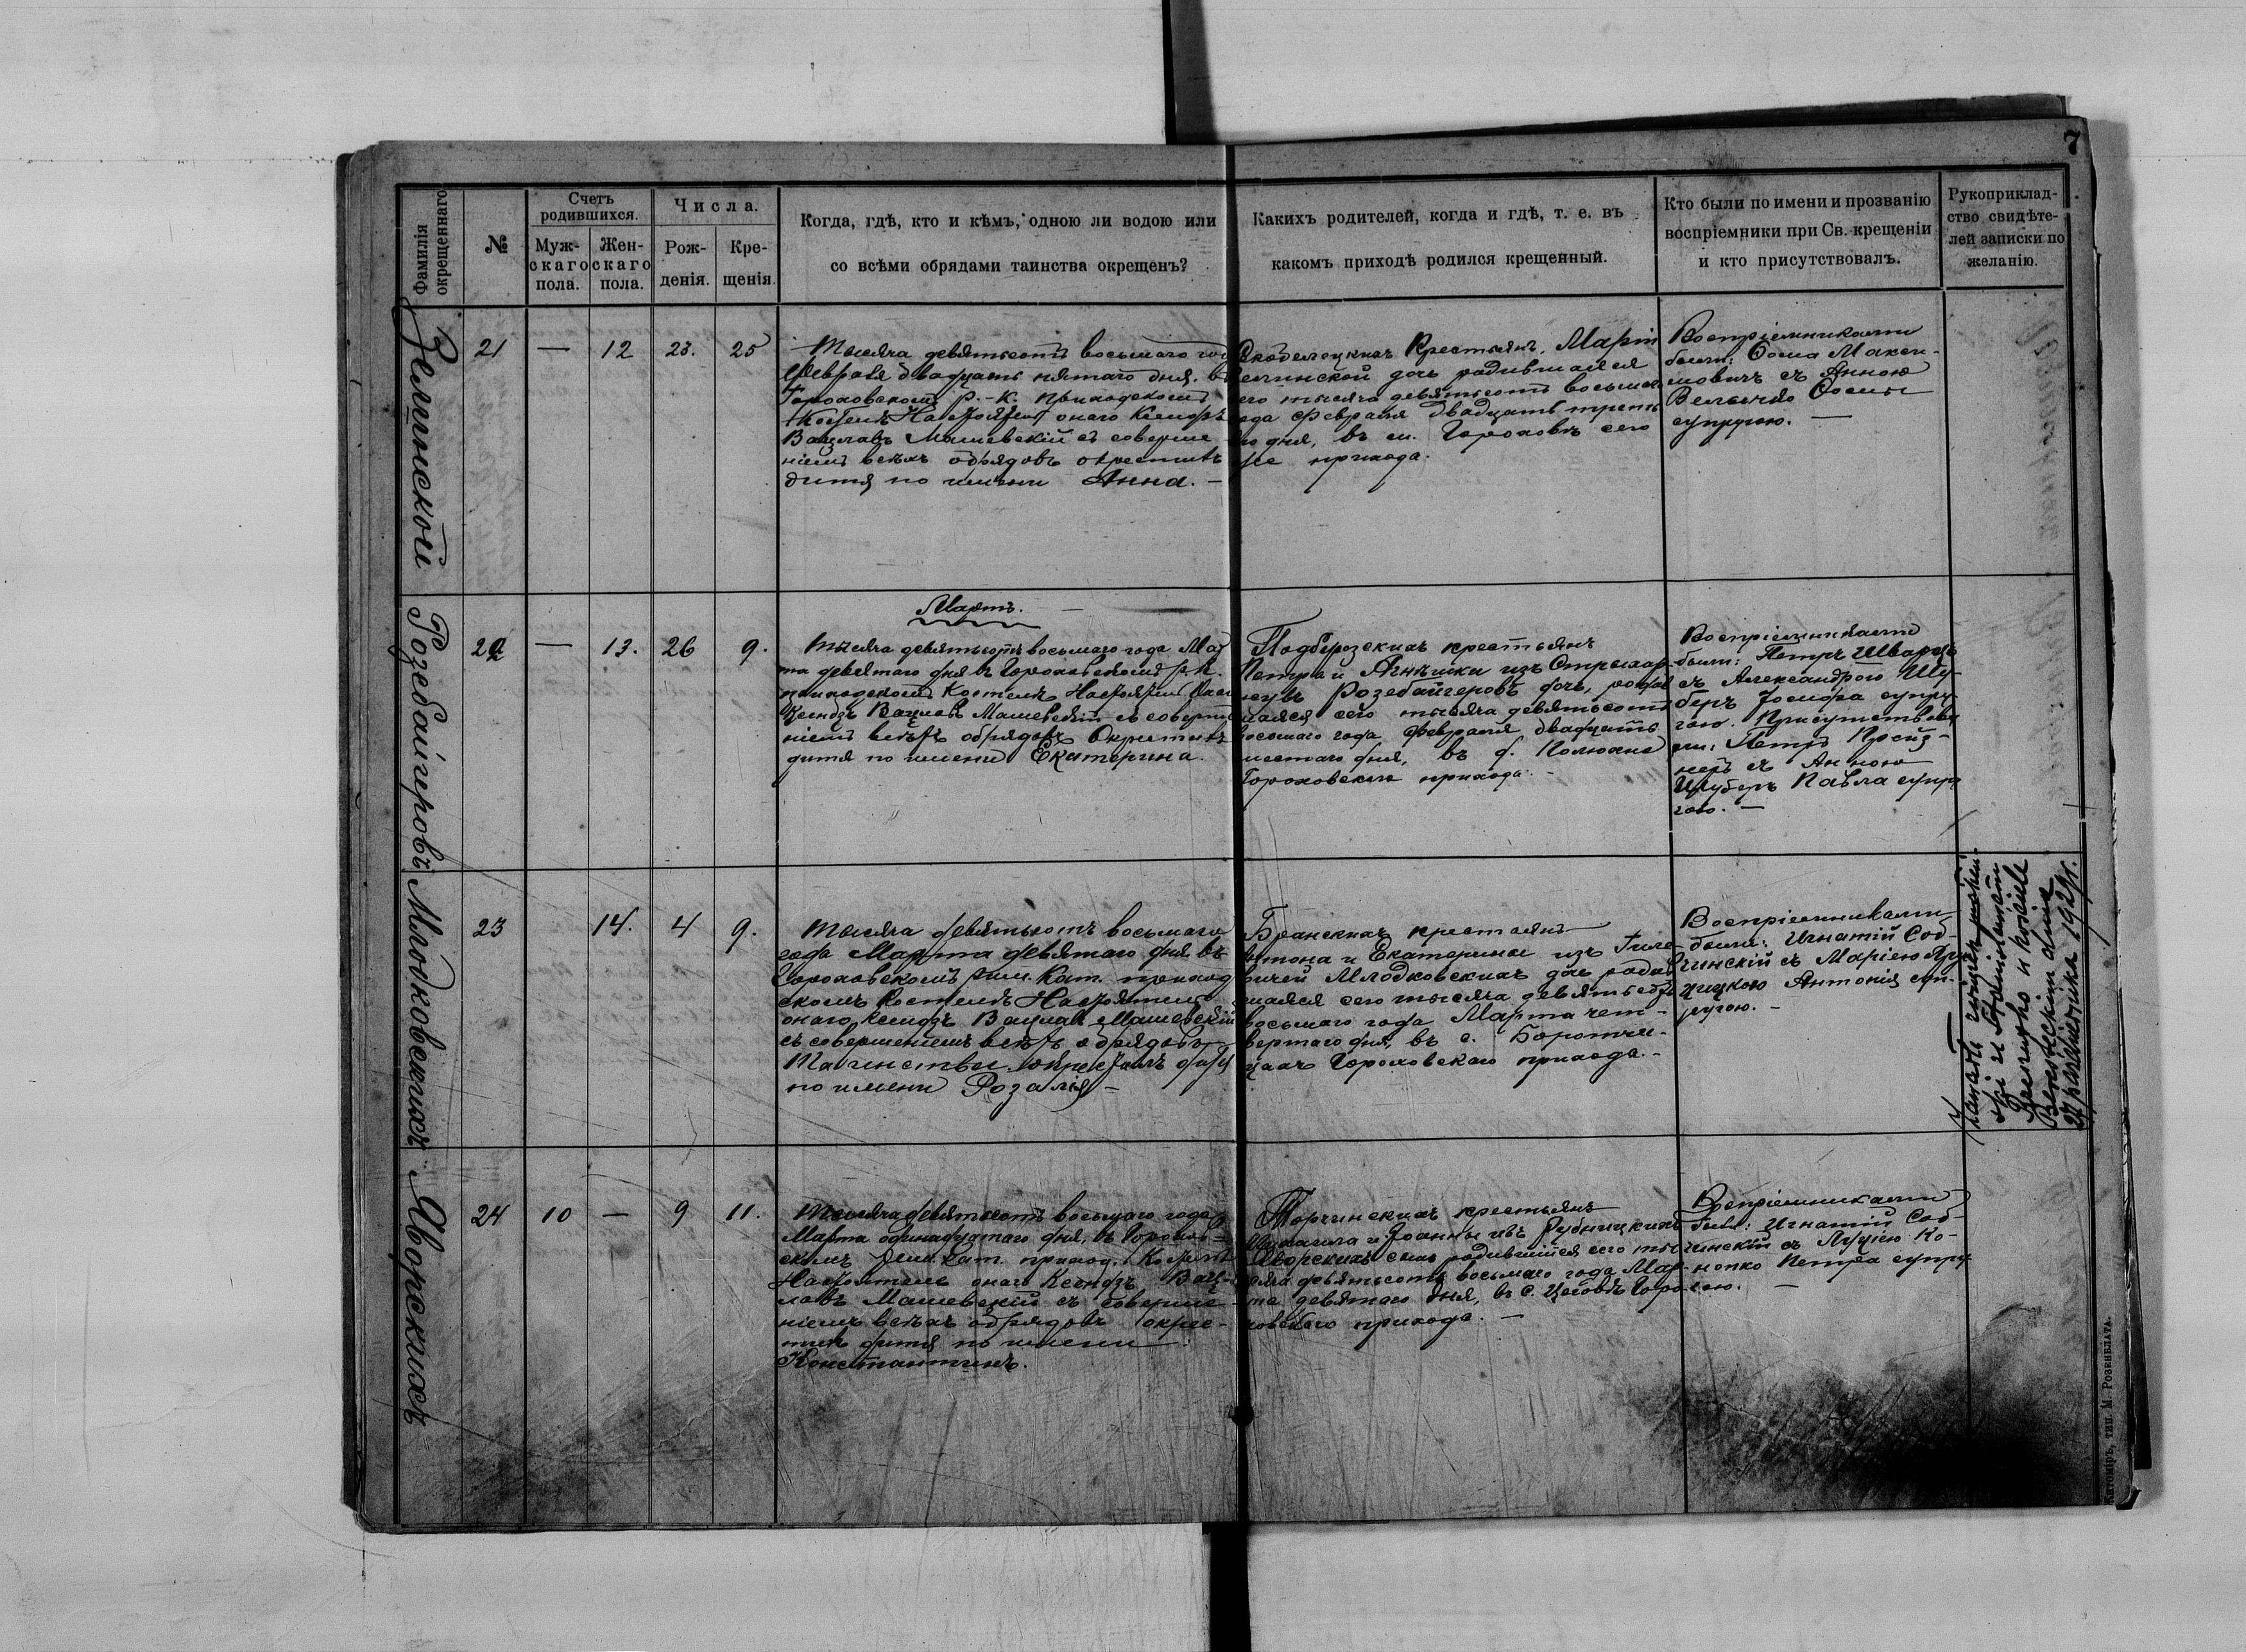 7
Фамилія
окрещеннаго
№
Счетъ
родившихся.
Муж-
скаго
пола.
Жен-
скаго
пола.
Числа.
Рож-
денія.
Кре-
щенія.
Когда, гдѣ, кто и кѣмъ, одною ли водою или
со всѣми обрядами таинства окрещенъ?
Какихъ родителей, когда и гдѣ, т. е. въ
какомъ приходѣ родился крещенный.
Кто были по имени и прозванію
воспріемники при Св. крещеніи
и кто присутствовалъ.
Рукоприклад-
ство свидѣте-
лей записки по
желанію.
Зелинской
21 — 12 23. 25
Тысяча девятьсотъ восьмаго год
Февраля двадцать пятаго дня. въ
Гороховскомъ р.-к. приходскомъ
Костелѣ Настоятель онаго Ксендзъ
Вацлавъ Машевскій съ соверше-
ніемъ всѣхъ обрядовъ окрестилъ
дитя по имени Анна. —
Крестьянъ, Маріи
Зелинской дочь родившаяся
сего тысяча девятьсотъ восьмаго
года Февраля двадцать треть
го дня, въ м. Гороховѣ сего
же прихода.
Воспріемниками
были: Ѳома Макси-
мовичъ съ Анною
Ѳомы
супругою. —
Розебайгеровъ
Мартъ. —
22 — 13. 26 9.
Тысяча девятьсотъ восьмаго года Мар
та девятаго дня въ Гороховскомъ р. к.
приходскомъ Костелѣ Настоятель онаго
Ксендзъ Вацлавъ Машевскій съ соверше
ніемъ всѣхъ обрядовъ Окрестилъ
дитя по имени Екатерина.
Подберозскихъ крестьянъ
Петра и Агнѣшки изъ
Розебайгеровъ дочь, родив
шаяся сего тысяча девятьсотъ
восьмаго года Февраля двадцать
шестаго дня, въ д. Полюхно
Гороховскаго прихода. —
Воспріемниками
были: Петръ Шварцъ
съ Александрою Шу-
беръ Іосифа супру-
гою. Присутствова
ли: Петръ
съ Анною
Шуберъ Павла супру
гою. —
Млодковскихъ
23 14. 4 9.
Тысяча девятьсотъ восьмаго
года Марта девятаго дня въ
Гороховскомъ рим. Кат. приход
скомъ Костелѣ Настоятель
онаго Ксендзъ Вацлавъ Машевскій
съ совершеніемъ всѣхъ обрядовъ
Таинства окрестилъ дитя
по имени Розалія —
Бранскихъ крестьянъ
Антона и Екатерины изъ
Млодковскихъ дочь родив
шаяся сего тысяча девятьсотъ
восьмаго года Марта чет-
вертаго дня, въ с. Боротчи-
цахъ Гороховскаго прихода. —
Воспріемниками
были: Игнатій Соб-
чинскій съ Маріею
Антонія суп-
ругою. —
i Stanisławem
w kościele
dnia
27 października 1929 r.
Яворскихъ
24 10 — 9 11.
Тысяча девятьсотъ восьмаго года
Марта одинадцатаго дня, въ Горохов-
скомъ рим. кат. приход. Костелѣ
Настоятель онаго Ксендзъ Вац-
лавъ Машевскій съ соверше-
ніемъ всѣхъ обрядовъ окрес-
тилъ дитя по имени
Константинъ.
Торчинскихъ крестьянъ
Михаила и Іоанны изъ Рудницкихъ
Яворскихъ сынъ родившійся сего ты
сяча девятьсотъ восьмаго года Мар-
та девятаго дня, въ с. Цеговѣ Горо
ховскаго прихода. —
Воспріемниками
были: Игнатій Соб-
чинскій съ Луціею Ко-
нопко Петра супру
гою. —
Житоміръ, тип. М. Розенблата.